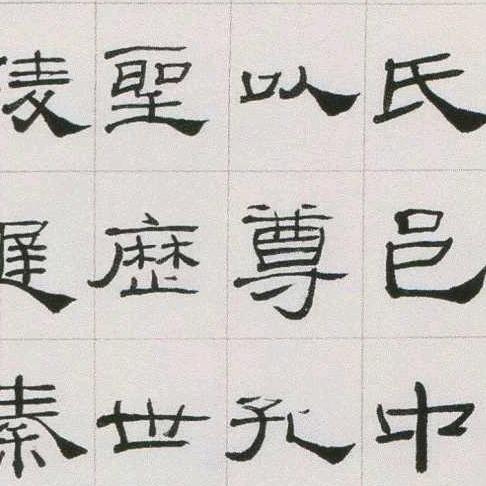 氏邑中
以尊孔
聖歷世
陵遲秦